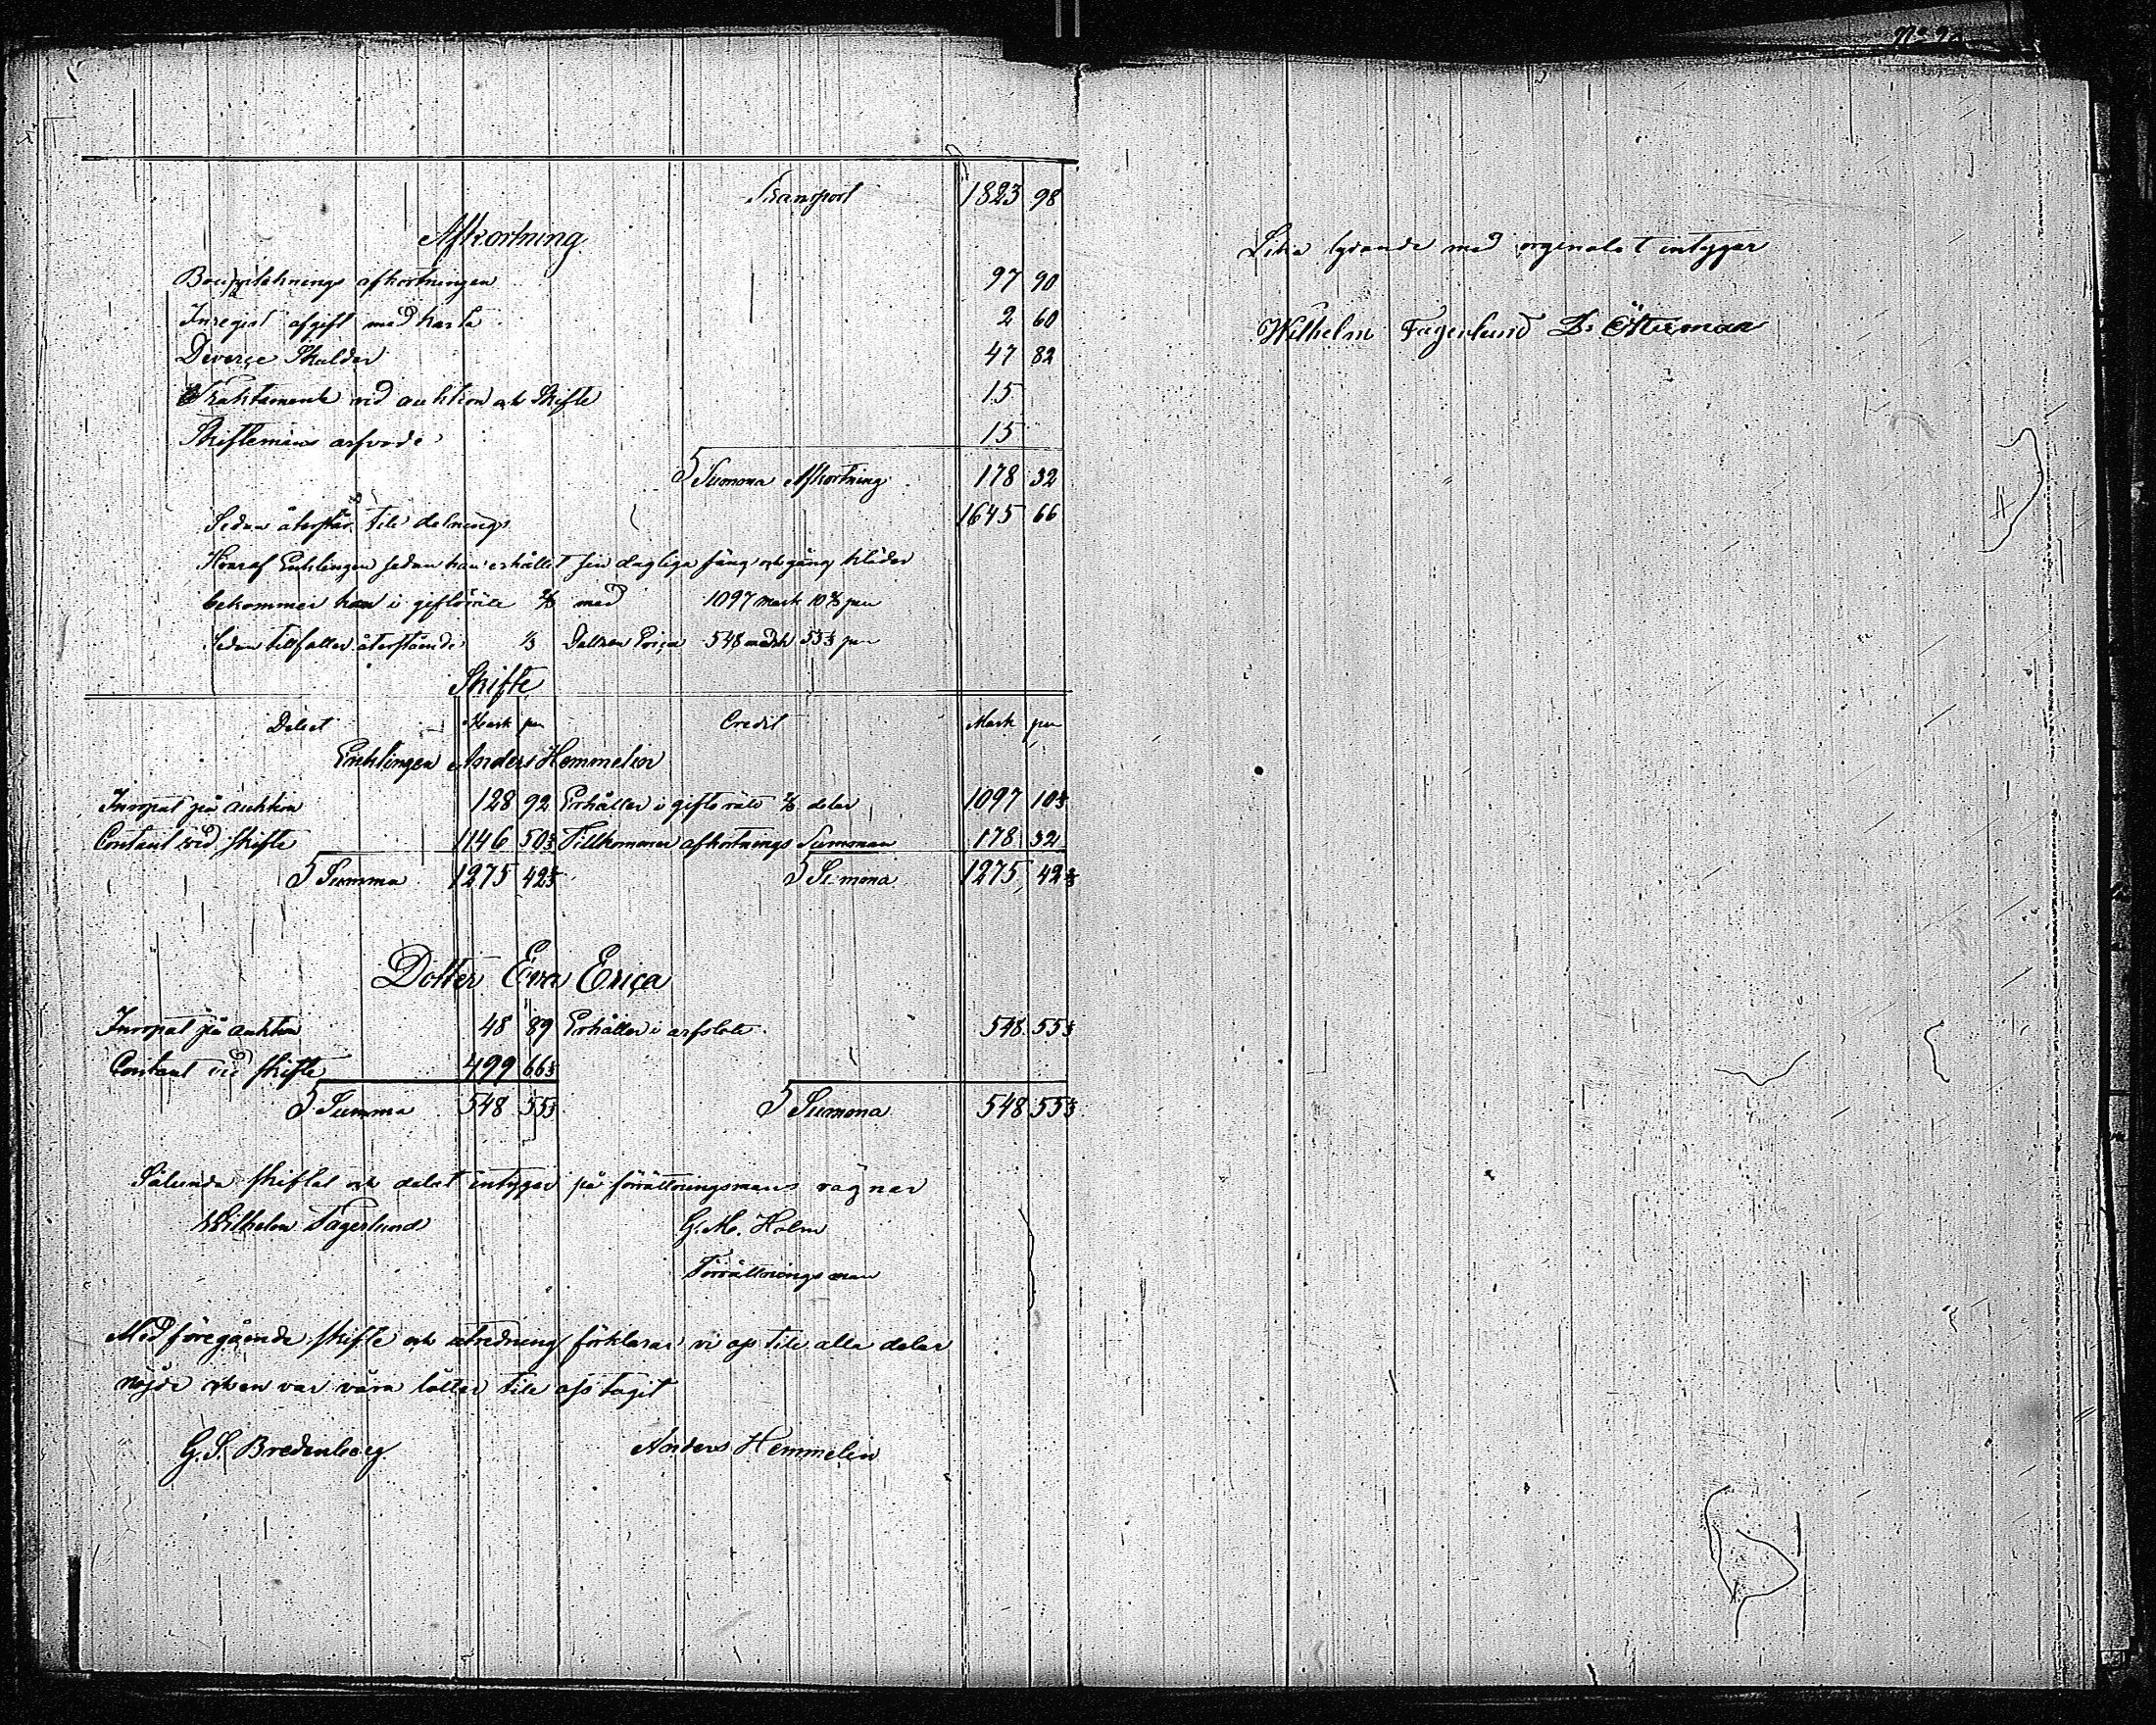 Transport 1823 98
Afkortning
Bouppteknings afkortningen 97 90
Inregist afgift med karta 2 60
Diverçe Skulder 47 82
Traktamente vid auktion och Skifte 15
Skiftemäns arfvode 15
Summa Afkortning 178 32
Sedan återstår till delnings 1645 66
Hvaraf Enklingen sedan han erhållit sin dagliga säng och gång kläder
bekommer han i giftorätt 2/3 med 1097 mark 10 2/3 pen
Sedan tillfaller återstående 1/3 Dottren Eriça 548 mark 55 1/3 pen
Skifte
Debet Mark pen Credit Mark pen
Enklingen Anders Hemmelin
Inropat på auktion 128 92 Erhåller i giftorätt 2/3 delar 1097 10 2/3
Contant vid skifte 1146 50 2/3 Tillkommer afkortnings Summan 178 32
Summa 1275 42 2/3 Summa 1275 42 2/3
Dotter Eva Eriça
Inropat på auktion 48 89 Erhåller i arfslott 548 55 1/3
Contant vid skifte 499 66 1/3
Summa 548 55 1/3 Summa 548 55 1/3
Sålunda skiftat och delat intygar på förrättningsmans vägnar
Wilhelm Fagerlund G. M. Holm
Förrättningsman
Med föregående skifte och utredning förklarar vi oss till alla delar
nöjde och en var våra lotter till oss tagit
G. S. Bredenberg Anders Hemmelin
Lika lydande med orginalet intygar
Wilhelm Fagerlund D. Österman